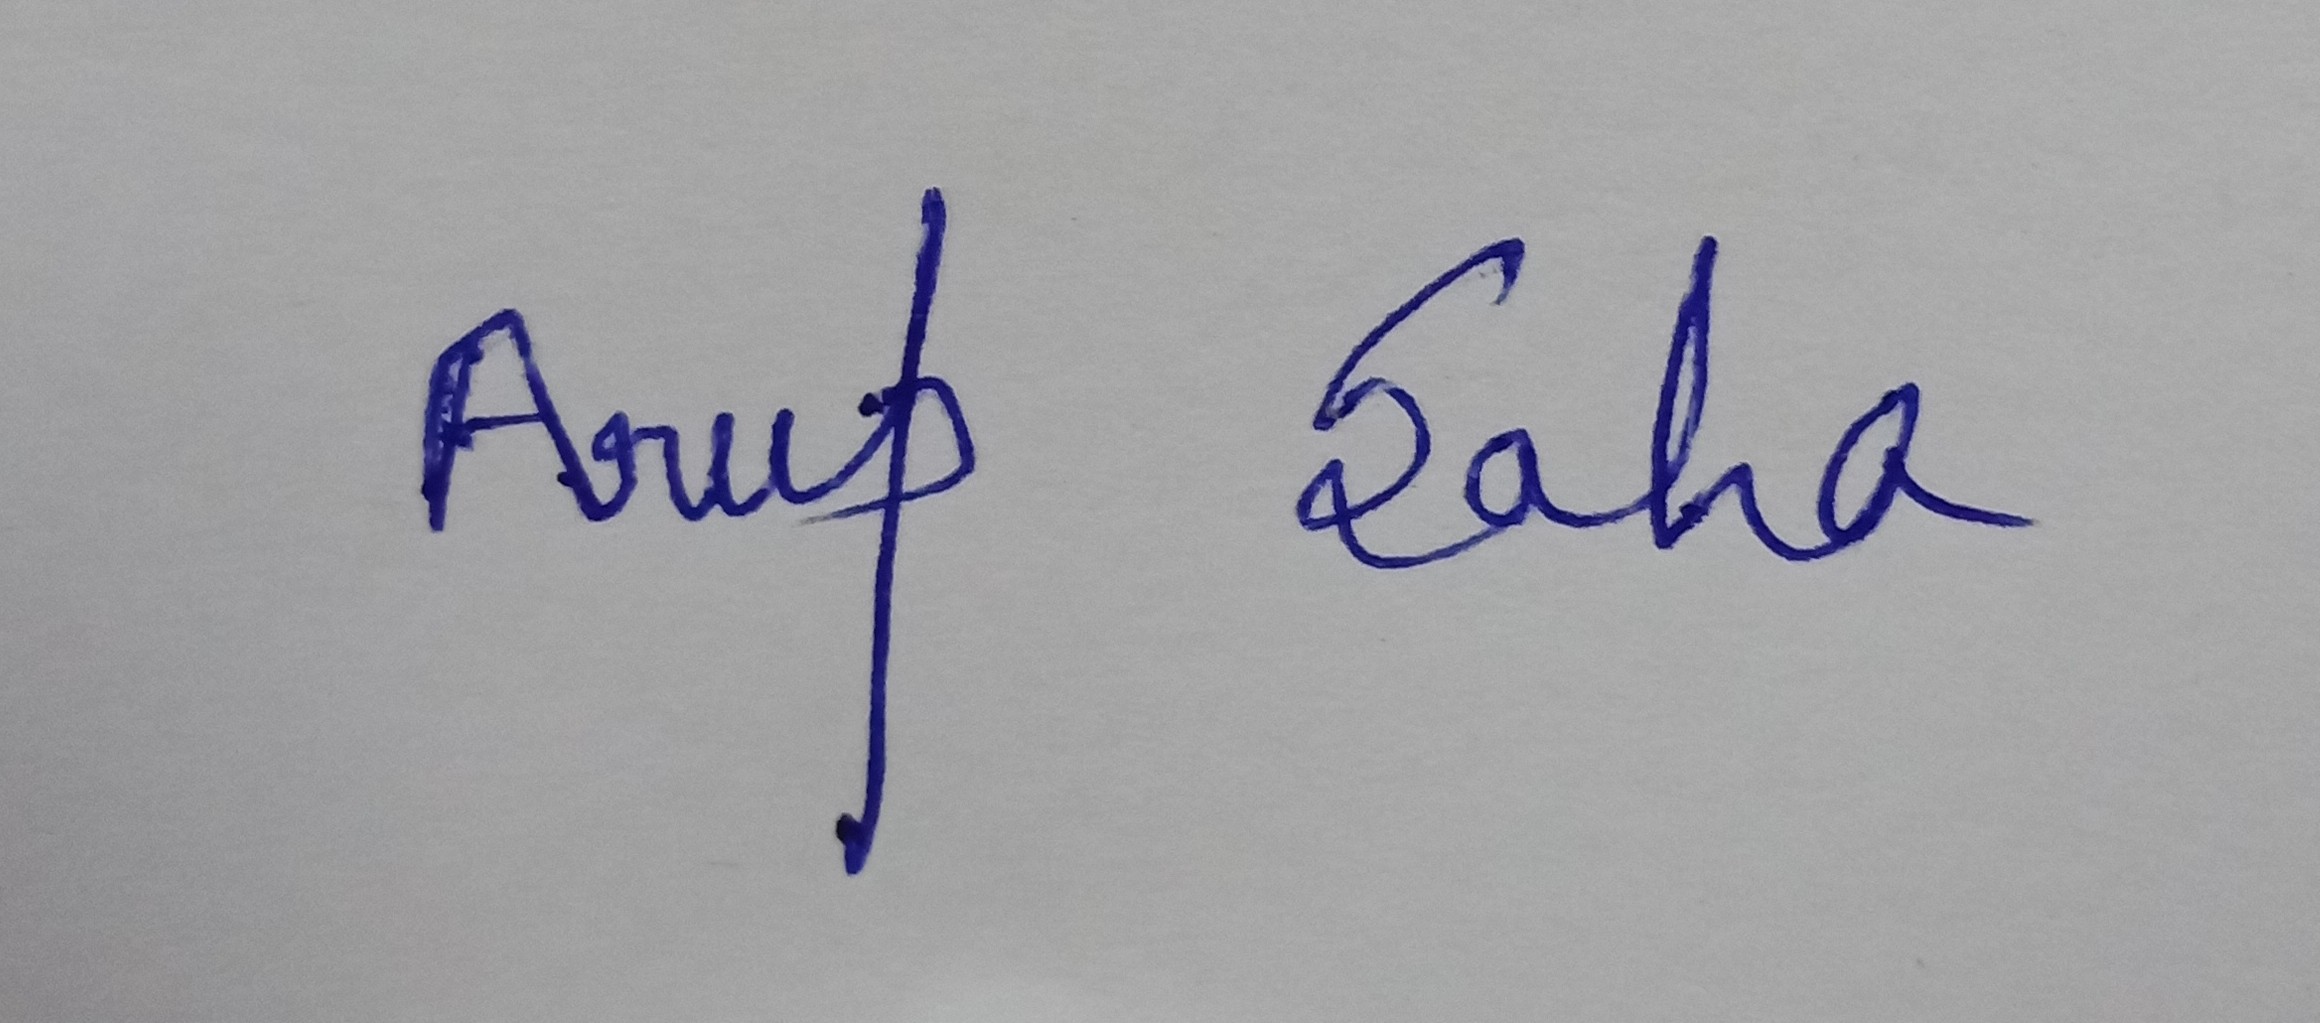 Arup Saha